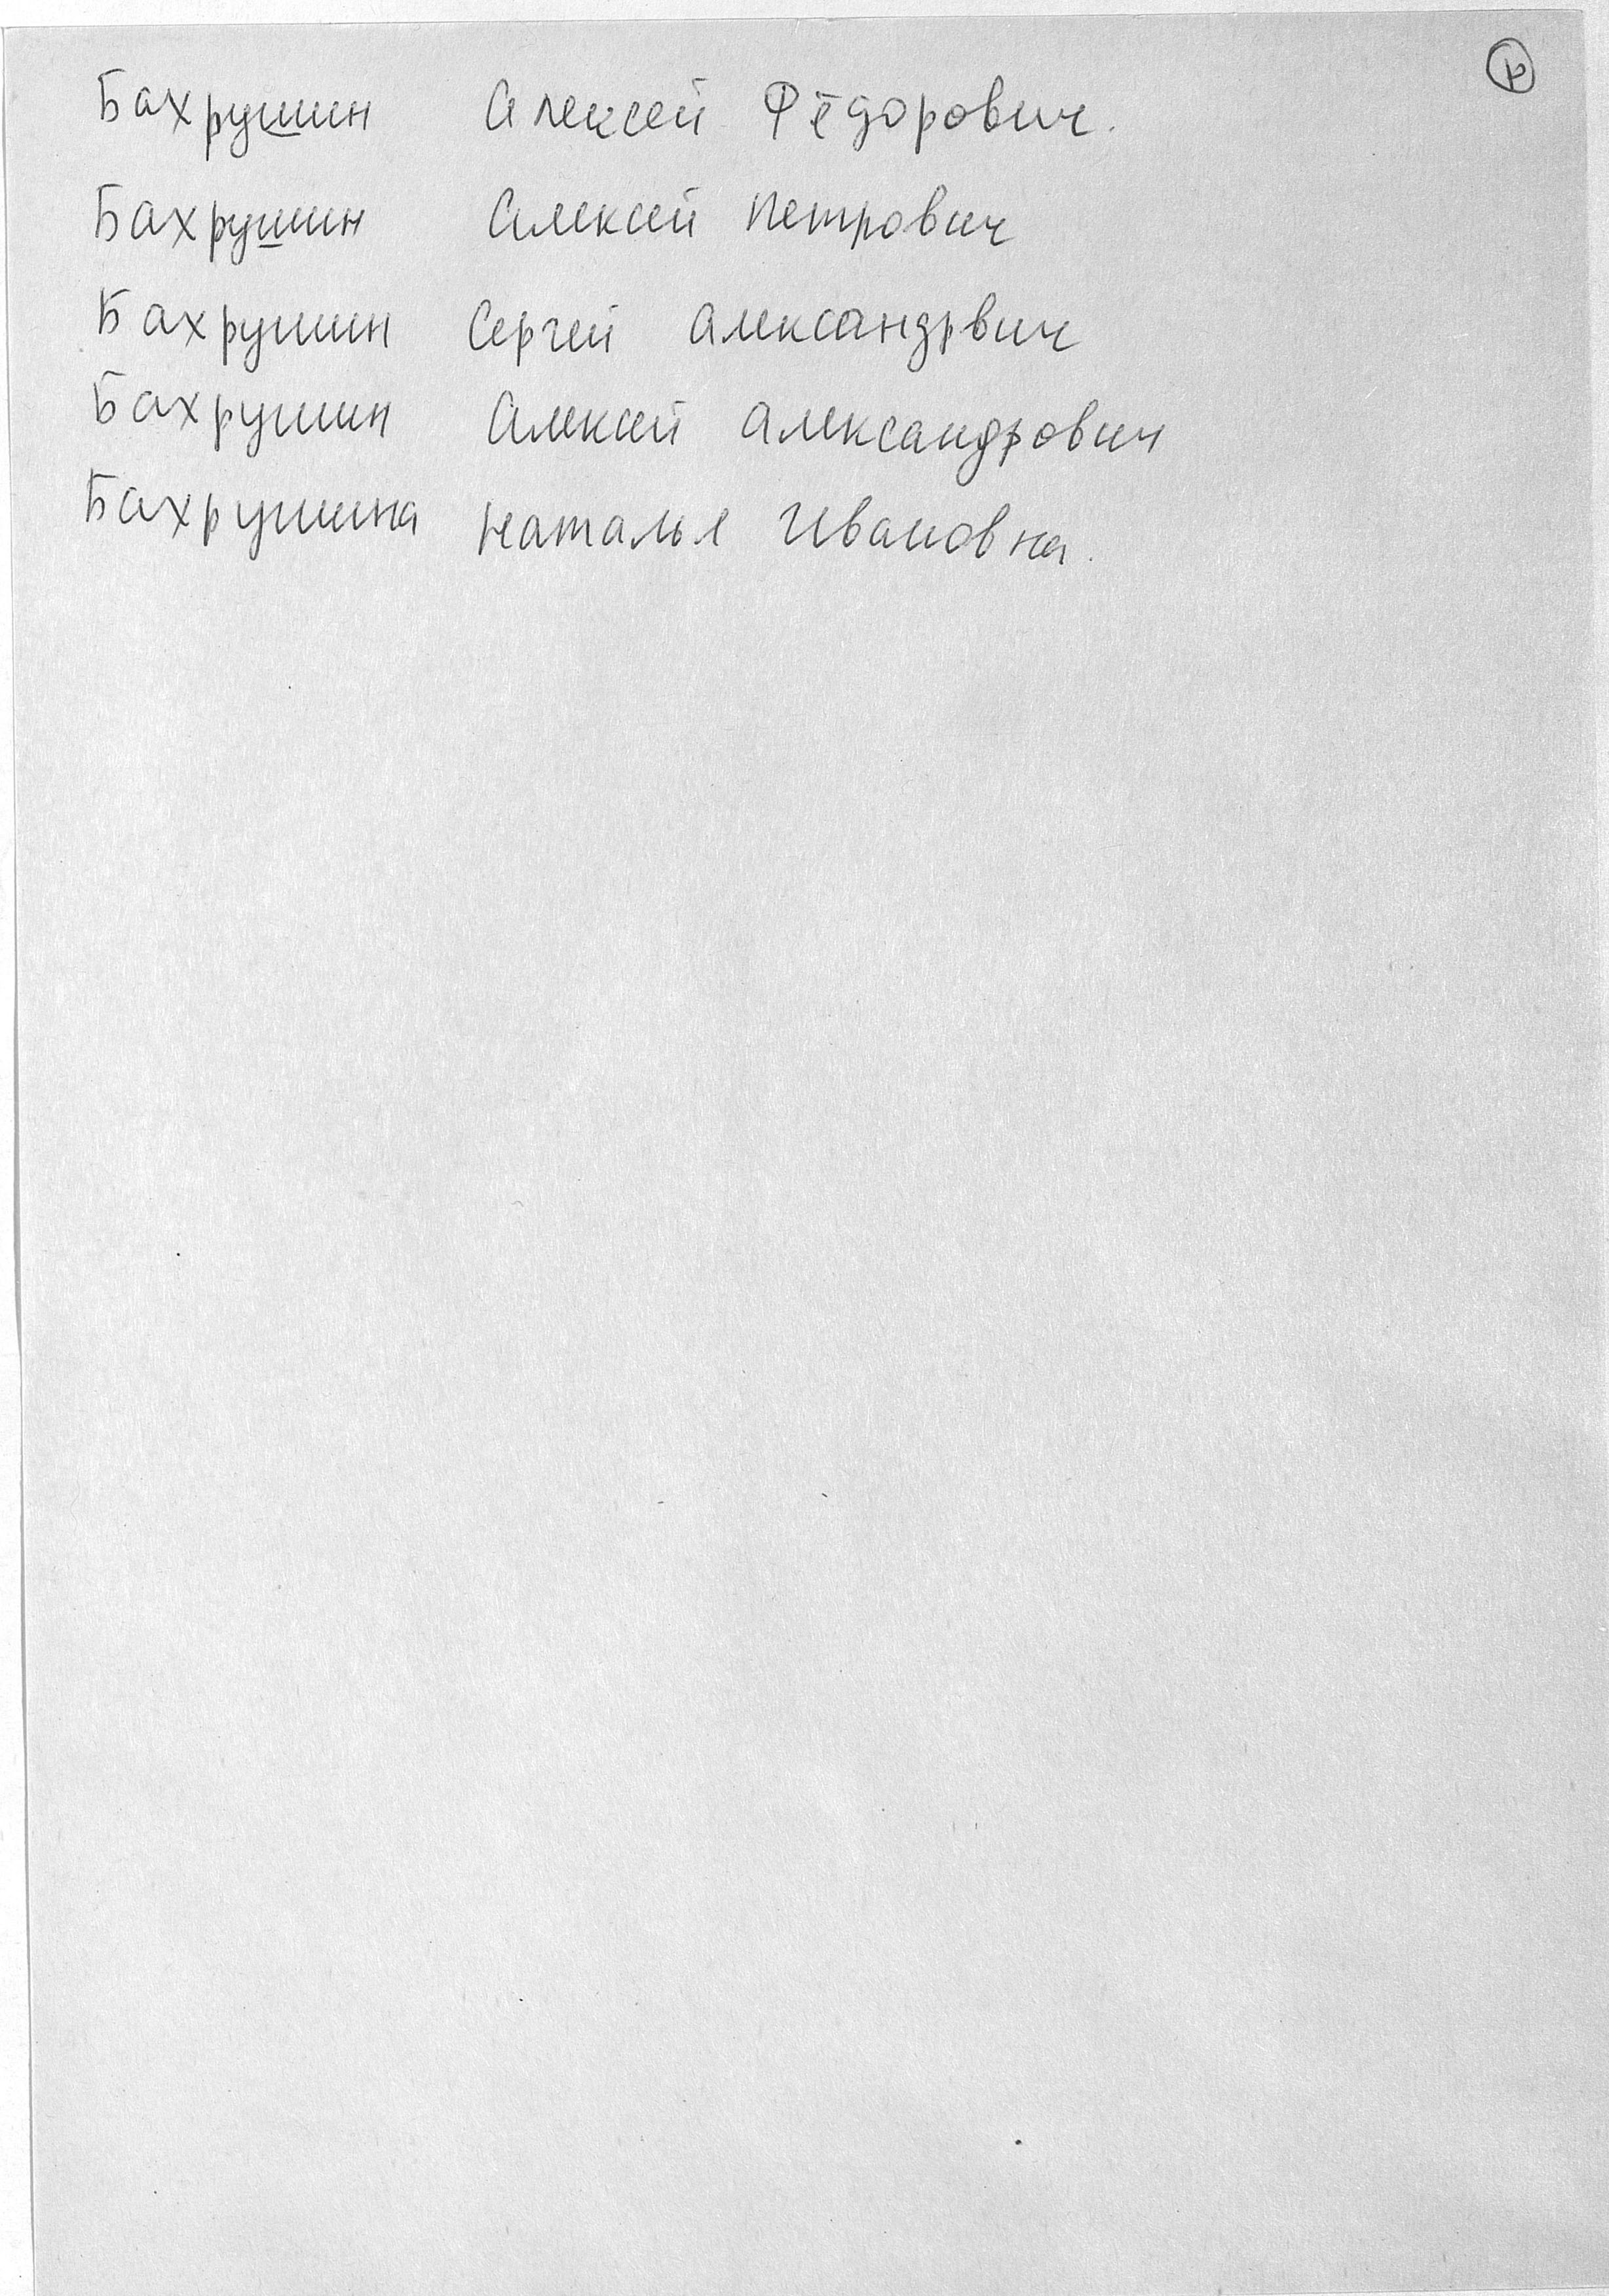 Бахрушин Алексей Фёдорович.
Бахрушин Алексей Петрович
Бахрушин Сергей Александрвич
Бахрушин Алексей Александрович
Бахрушина Наталья Ивановна.